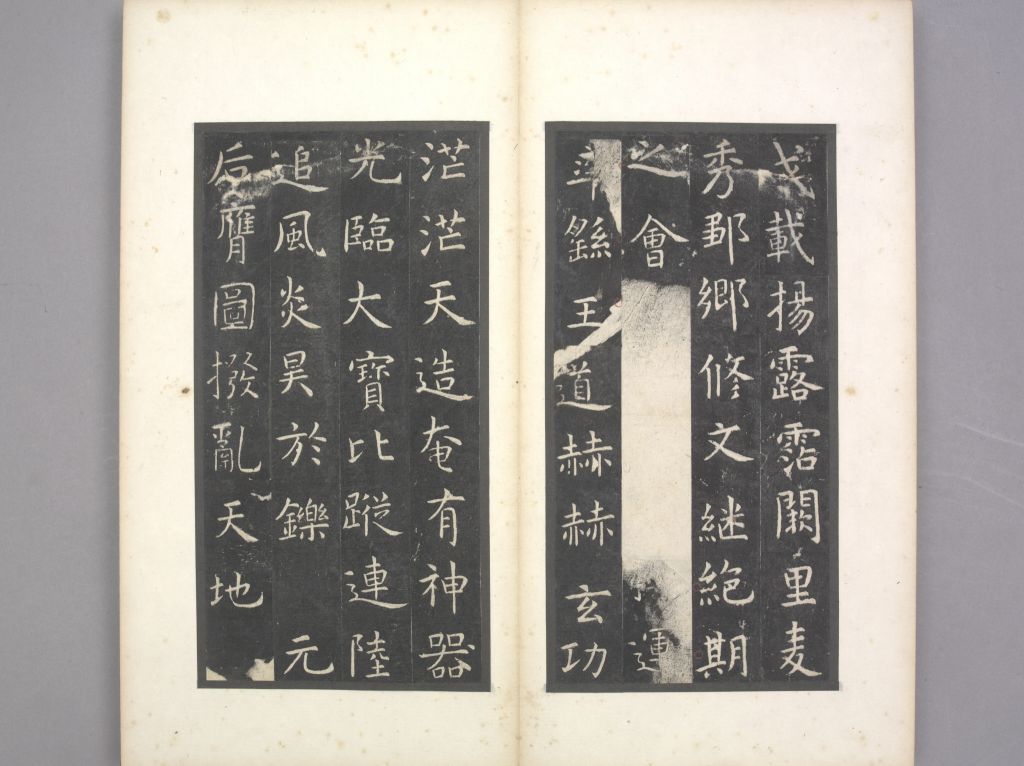 戈載揚露霑闕里麦
秀鄒鄉修文継絶期
之會運
率繇王道赫赫玄功
茫茫天造奄有神器
光臨大寶比蹤連陸
追風炎昊於鑠元
后膺圖撥亂天地